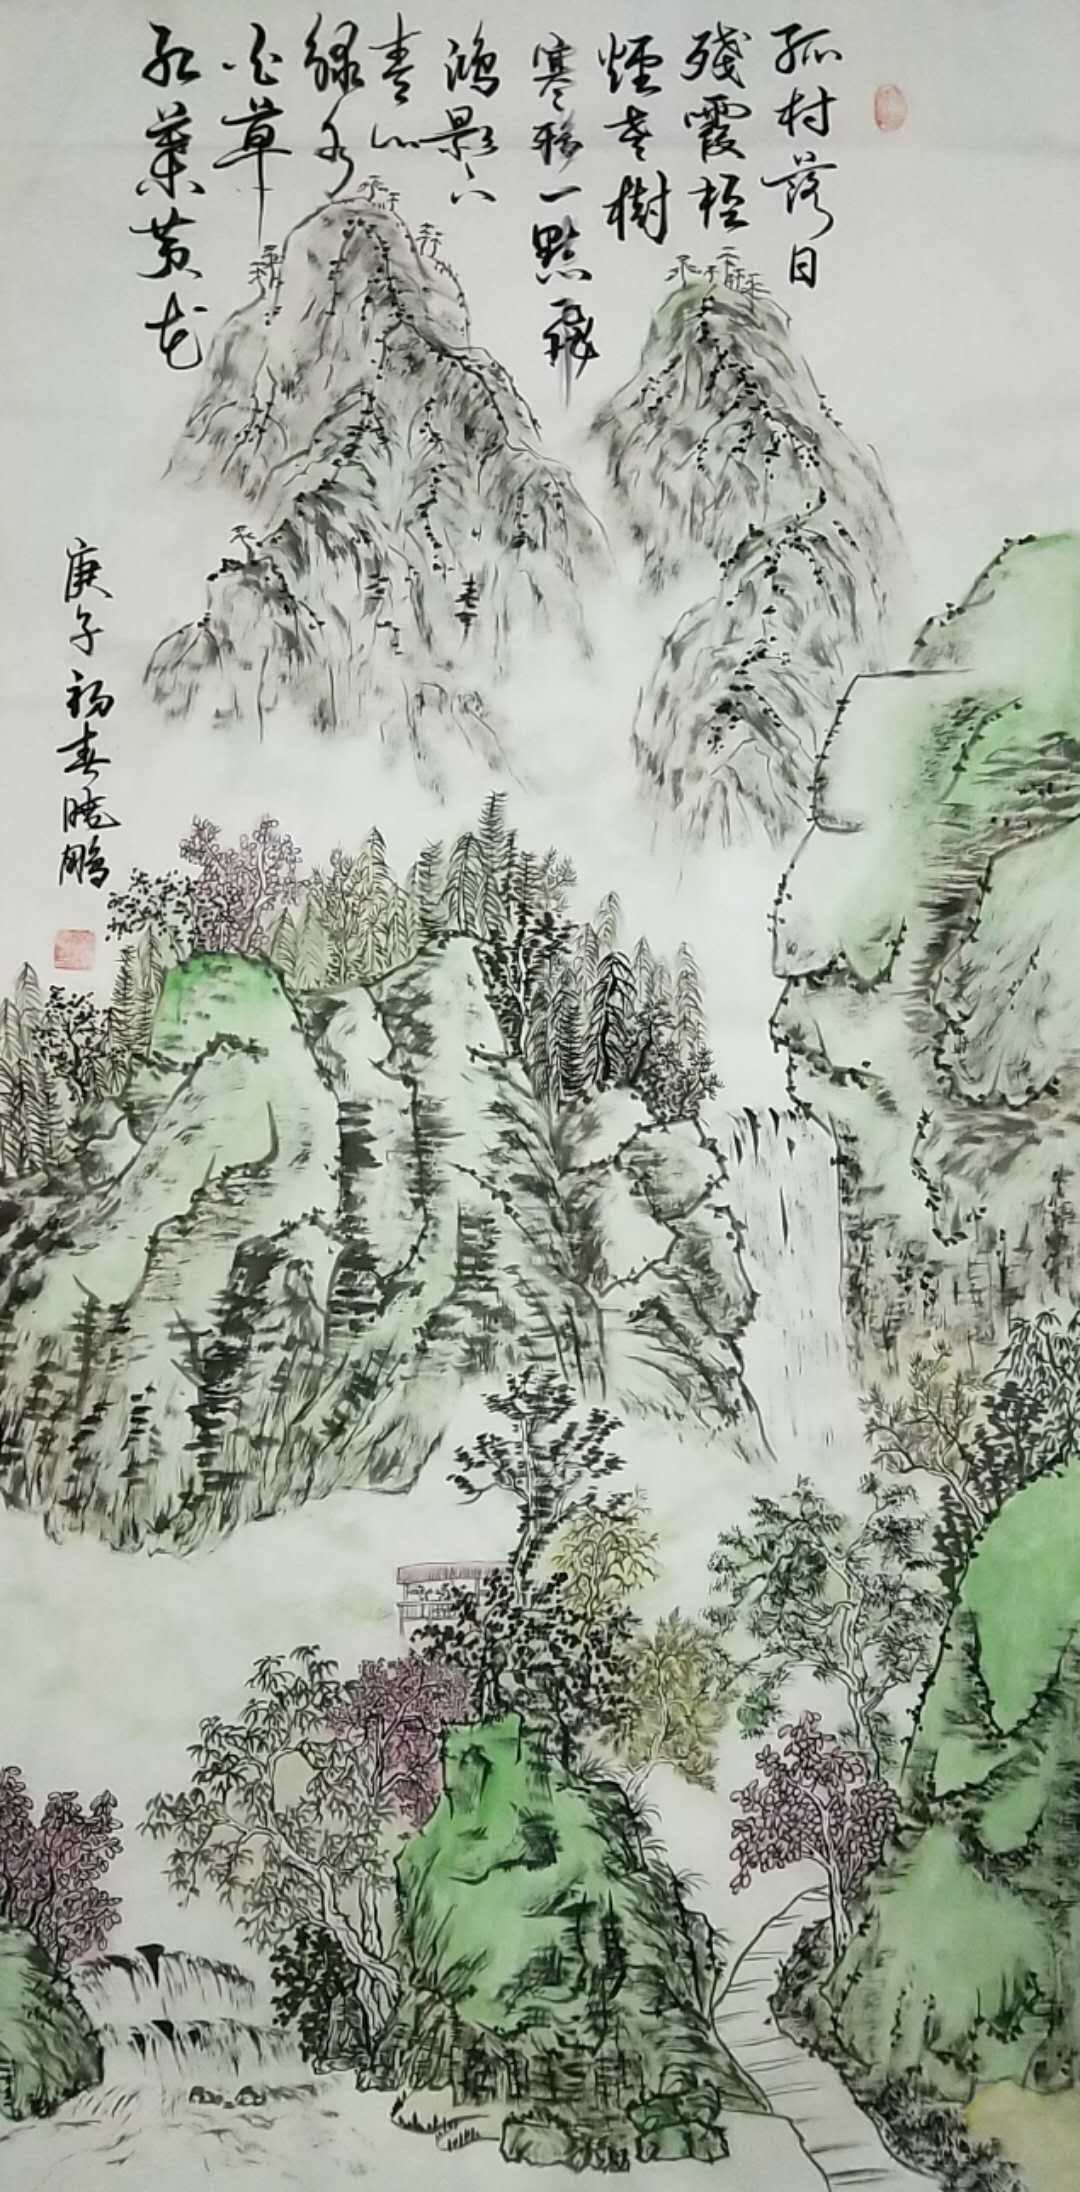 孤村落日
殘霞輕
煙老樹
寒鴉一點飛
鴻影下
青山
綠水
白草
紅葉黄花
庚子初春曉鵬